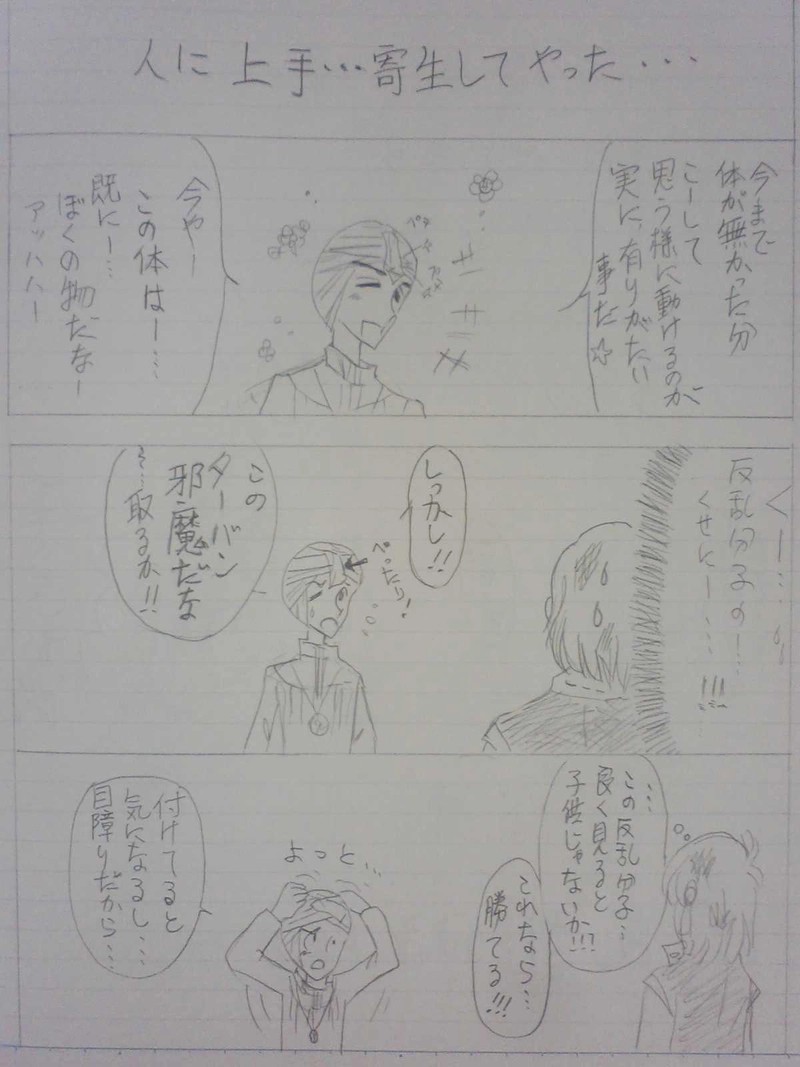 人に上手…寄生してやった…
今まで
体が無かった分
こーして
思う様に動けるのが
実に、有りがたい
事だ☆
ペタ
今やー
この体はー…
既にー…
ぼくの物だなー
アッハハー
くー…
反乱分子の!…
くせにー…!!!
しっかし!!
ぺったり!
この
ターバン
邪魔だな
…取るか!!
…この反乱分子…
良く見ると
子供じゃないか!!?
これなら…
勝てる!!!
よっと…
付けてると
気になるし…
目障りだから…